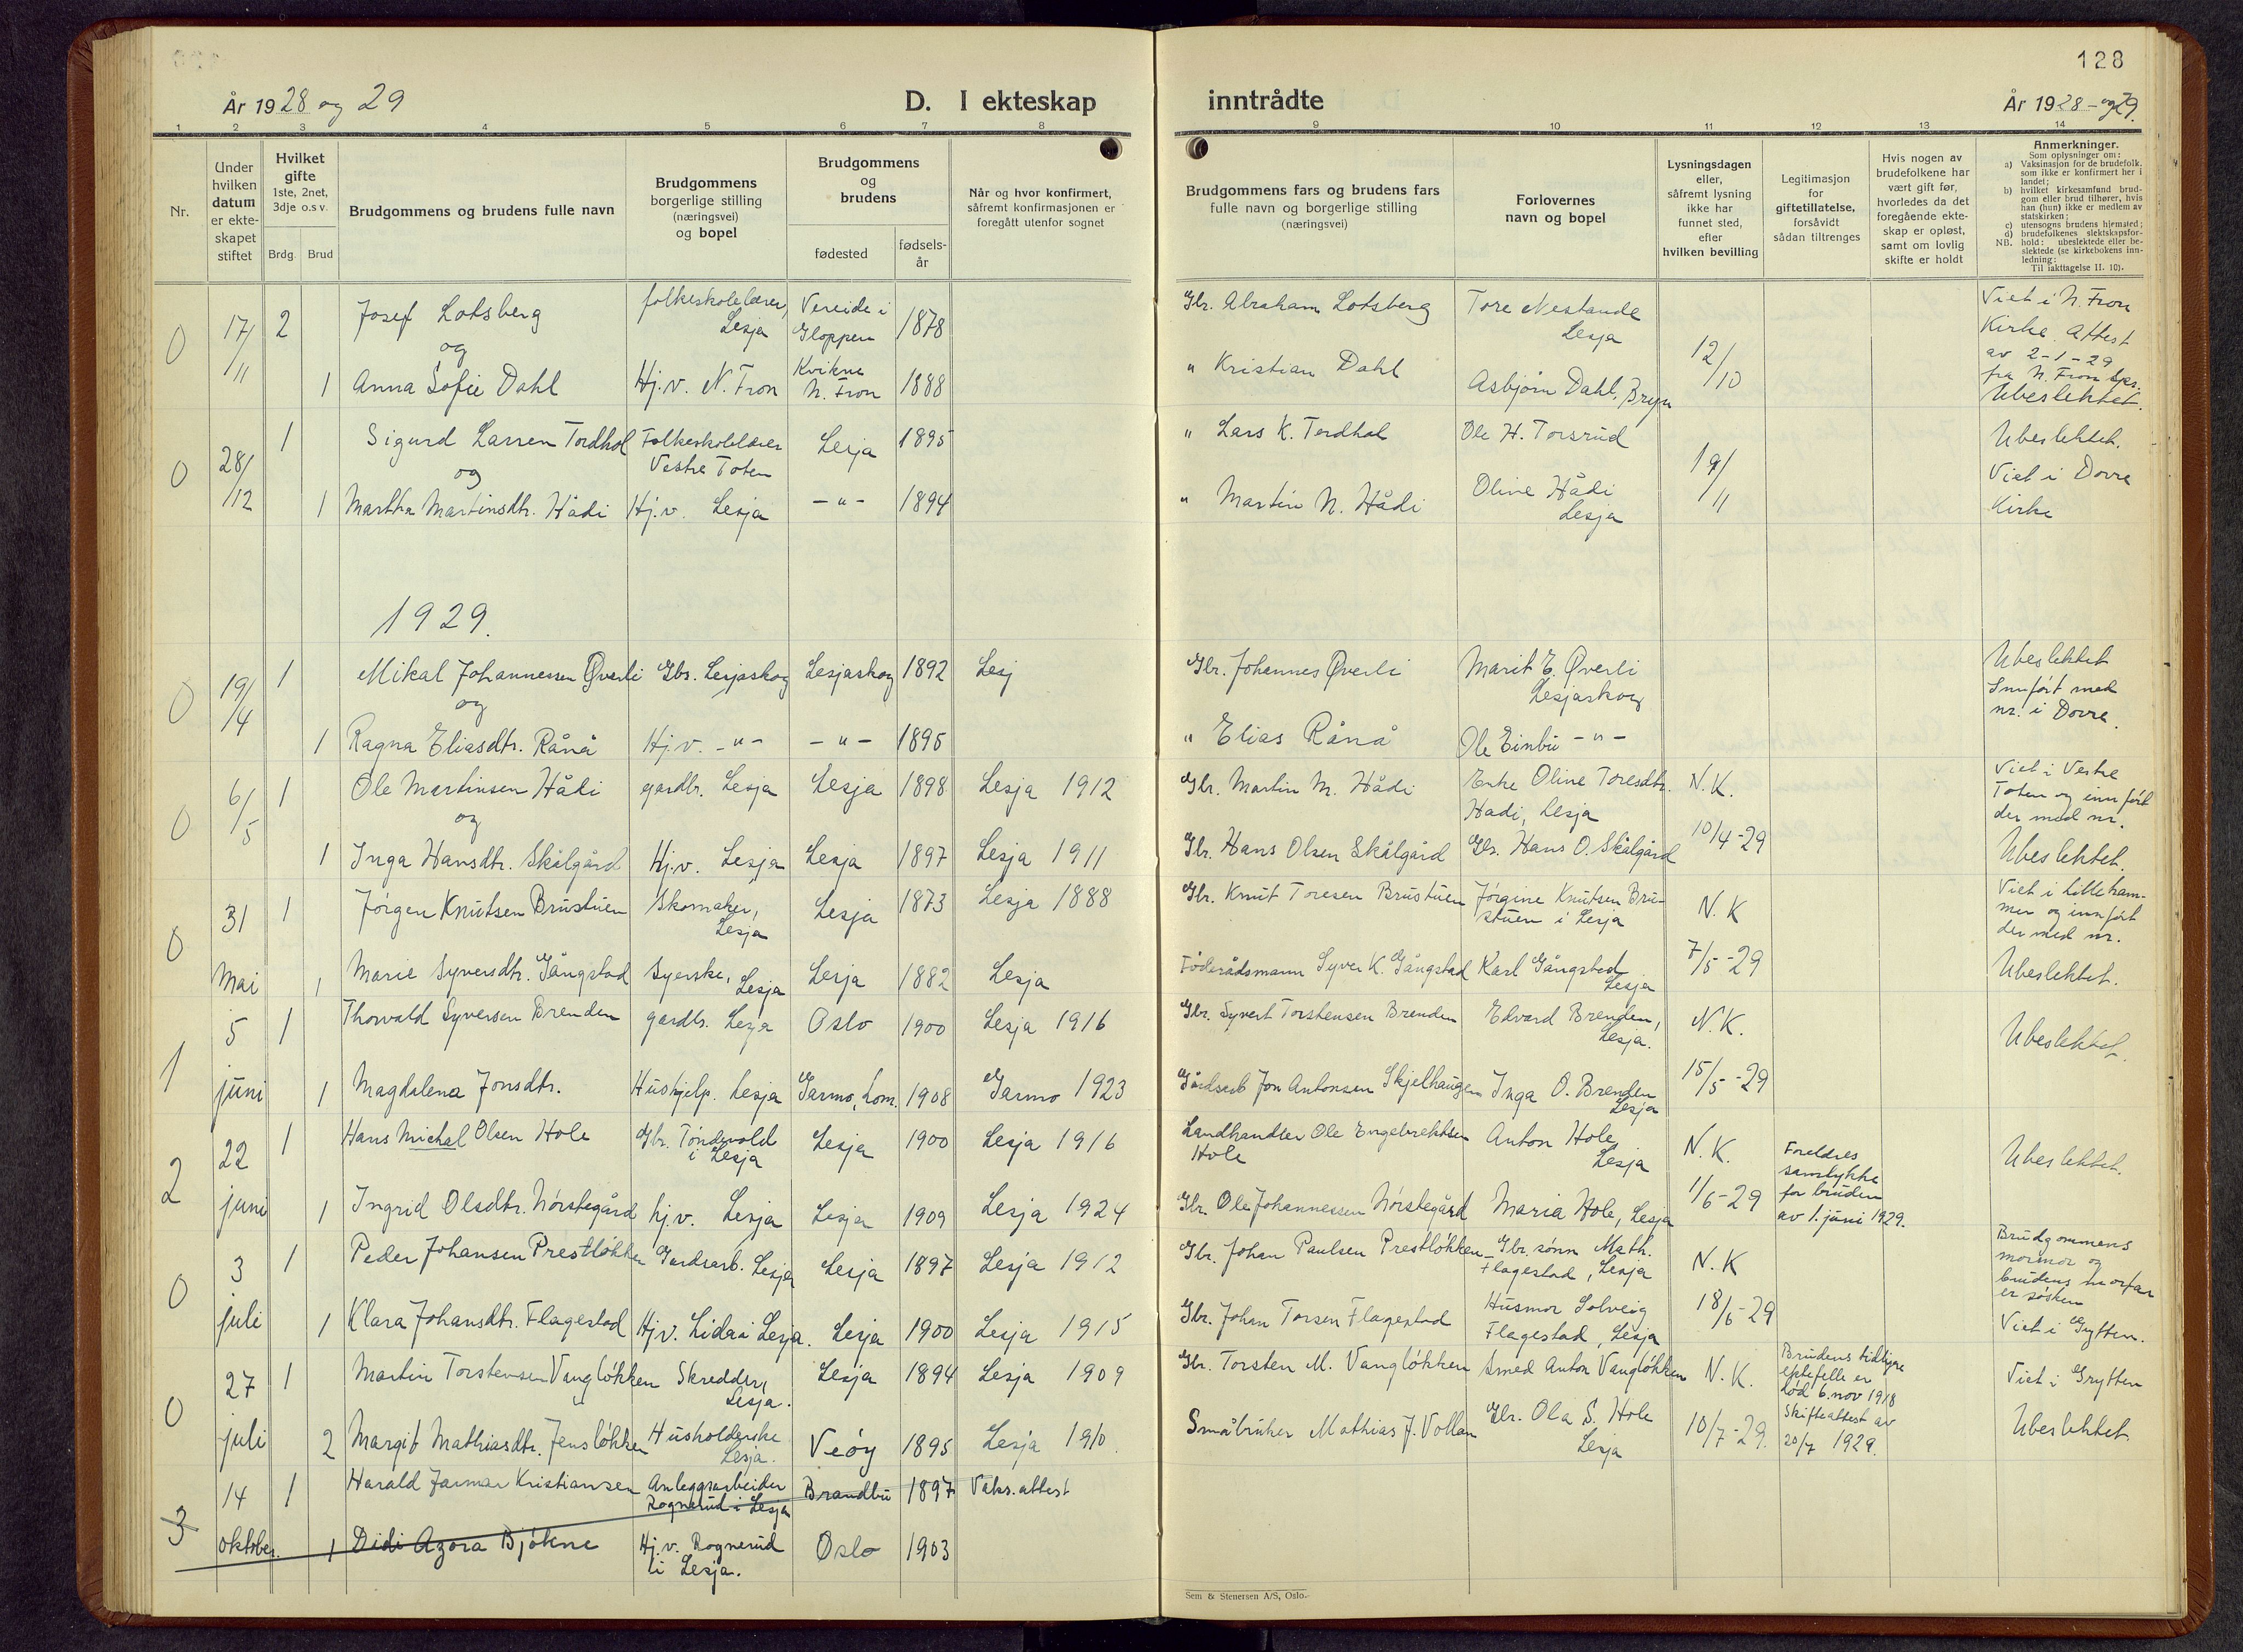 128
År 1928 og 29
D. I ekteskap
inntrådte
År 1928 - og 29.
1 2 3 4 5 6 7 8
9 10 11 12 13 14
Nr.
Under
hvilken
datum
er ekte-
skapet
stiftet
Hvilket
gifte
1ste, 2net,
3dje o.s.v.
Brdg.
Brud
Brudgommens og brudens fulle navn
Brudgommens
borgerlige stilling
(næringsvei)
og bopel
Brudgommens
og
brudens
fødested
fødsels-
år
Når og hvor konfirmert,
såfremt konfirmasjonen er
foregått utenfor sognet
Brudgommens fars og brudens fars
fulle navn og borgerlige stilling
(næringsvei)
Forlovernes
navn og bopel
Lysningsdagen
eller,
såfremt lysning
ikke har
funnet sted,
efter
hvilken bevilling
Legitimasjon
for
giftetillatelse,
forsåvidt
sådan tiltrenges
Hvis nogen av
brudefolkene har
vært gift før,
hvorledes da det
foregående ekte-
skap er opløst,
samt om lovlig
skifte er holdt
Anmerkninger.
Som oplysninger om:
a) Vaksinasjon for de brudefolk.
som ikke er konfirmert her i
landet;
b) hvilket kirkesamfund brud-
gom eller brud tilhører, hvis
han (hun) ikke er medlem av
statskirken;
c) utensogns brudens hjemsted;
d) brudefolkenes slektskapsfor-
NB. hold: ubeslektede eller be-
slektede (se kirkebokens inn-
ledning:
Til iakttagelse II. 10).
0 17/11 2 Josef Lotsberg
og
folkeskolelærer,
Lesja
Vereide i
Gloppen
1878
Gbr. Abraham Lotsberg
Tore Nestande
Lesja
12/10
Viet i N. Fron
Kirke. Attest
av 2-1-29
fra N. Fron spr.
Ubeslektet.
1 Anna Sofie Dahl
Hj.v. N. Fron
Kvikne
N. Fron
1888
" Kristian Dahl
Asbjørn Dahl, Bryn
0 28/12 1 Sigurd Larsen Tordhol
og
Folkeskolelærer
Vestre Toten
Lesja
1895
" Lars K. Tordhol
Ole H. Torsrud
19/11
Ubeslektet.
Viet i Dovre
Kirke
1 Martha Martinsdtr. Hådi
Hj.v. Lesja
- " -
1894
" Martin N. Hådi
Oline Hådi
Lesja
1929.
0 19/4 1 Mikal Johannessen Øverli
og
Gbr. Lesjaskog
Lesjaskog
1892
Lesj
Gbr. Johannes Øverli
Marit E. Øverli
Lesjaskog
Ubeslektet
Innført med
nr. i Dovre.
1 Ragna Eliasdtr. Rånå
Hj.v. - " -
- " -
1895
" Elias Rånå
Ole Einbu - " -
0 6/5 1 Ole Martinsen Hådi
og
gardbr. Lesja
Lesja
1898
Lesja 1912
Gbr. Martin M. Hådi
Enke Oline Toresdtr.
Hadi, Lesja
N.K.
10/4-29
Viet i Vestre
Toten og innført
der med nr.
Ubeslektet.
1 Inga Hansdtr. Skålgård
Hj.v. Lesja
Lesja
1897
Lesja 1911
Gbr. Hans Olsen Skålgård
Gbr. Hans O. Skålgård
0 31 Mai 1 Jørgen Knutsen Brustuen
Skomaker,
Lesja
Lesja
1873
Lesja 1888
Gbr. Knut Toresen Brustuen
Jørgine Knutsen Bru-
stuen i Lesja
N.K
7/5-29
Viet i Lilleham-
mer og innført
der med nr.
Ubeslektet.
1 Marie Syversdtr. Gångstad
Syerske, Lesja
Lesja
1882
Lesja
Føderådsmann Syver K. Gångstad
Karl Gångstad
Lesja
1 5 juni 1 Thorvald Syversen Brenden
gardbr. Lesja
Oslo
1900
Lesja 1916
Gbr. Syvert Torstensen Brenden
Edvard Brenden,
Lesja.
N.K.
15/5-29
Ubeslektet.
1 Magdalena Jonsdtr.
Hushjelp. Lesja
Garmo, Lom.
1908
Garmo 1923
Gårdsarb Jon Antonsen Skjelhaugen
Inga O. Brenden
Lesja
2 22 juni 1 Hans Michal Olsen Hole
Gbr. Tøndevold
i Lesja
Lesja
1900
Lesja 1916
Landhandler Ole Engebrektsen
Hole
Anton Hole
Lesja
N.K.
1/6-29
Foreldres
samtykke
for bruden
av 1. juni 1929.
Ubeslektet.
1 Ingrid Olsdtr. Nørstegård
hj.v. Lesja
Lesja
1909
Lesja 1924
Gbr. Ole Johannessen Nørstegård
Maria Hole, Lesja
0 3 juli 1 Peder Johansen Prestløkken
Gardsarb. Lesja
Lesja
1897
Lesja 1912
Gbr. Johan Paulsen Prestløkken
Gbr. sønn Math.
Flagestad, Lesja
N.K
18/6-29
Brudgommens
mormor og
brudens morfar
er søsken
Viet i Grytten.
1 Klara Johansdtr. Flagestad
Hj.v. Lidar i Lesja.
Lesja
1900
Lesja 1915
Gbr. Johan Torsen Flagestad
Husmor Solveig
Flagestad, Lesja
0 27 juli 1 Martin Torstensen Vangløkken
Skredder,
Lesja.
Lesja
1894
Lesja 1909
Gbr. Torsten M. Vangløkken
Smed Anton Vangløkken
N.K.
10/7-29.
Brudens tidligere
ektefelle er
død 6. nov 1918
Skifteattest av
20/7 1929.
Viet i Grytten
Ubeslektet.
2 Margit Mathiasdtr. Jensløkken
Husholderske
Lesja.
Veøy
1895
Lesja 1910.
Småbruker Mathias J. Vollan
Gbr. Ola S. Hole
Lesja
3 14 oktober. 1 Harald Jarmar Kristiansen
Anleggsarbeider
Rognerud i Lesja
Brandbu
1897
Vaks.attest
1 Didi Agora Bjøkne
Hj.v. Rognerud
i Lesja.
Oslo
1903
Sem & Stenersen A/S, Oslo.